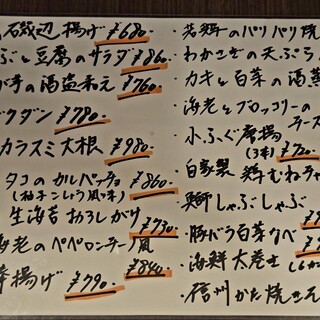 磯辺揚げ ¥680
ぶと豆腐のサラダ ¥860
の酒盗和え ¥760
クダン ¥780
カラスミ大根 ¥980
タコのカルパッチョ ¥860
(柚子こしょう風味)
生海苔おろしがけ ¥730
海老のペペロンチーノ風 ¥840
揚げ ¥790
・若鶏のパリパリ焼
・わかさぎの天ぷら
・カキと白菜の酒蒸
・海老とブロッコリーの
チーズ
・小ふぐ唐揚 (3本) ¥720
・自家製 鶏むねチャ
・鰤しゃぶしゃぶ
・豚バラ白菜なべ
・海鮮太巻き
・信州かた焼きそ